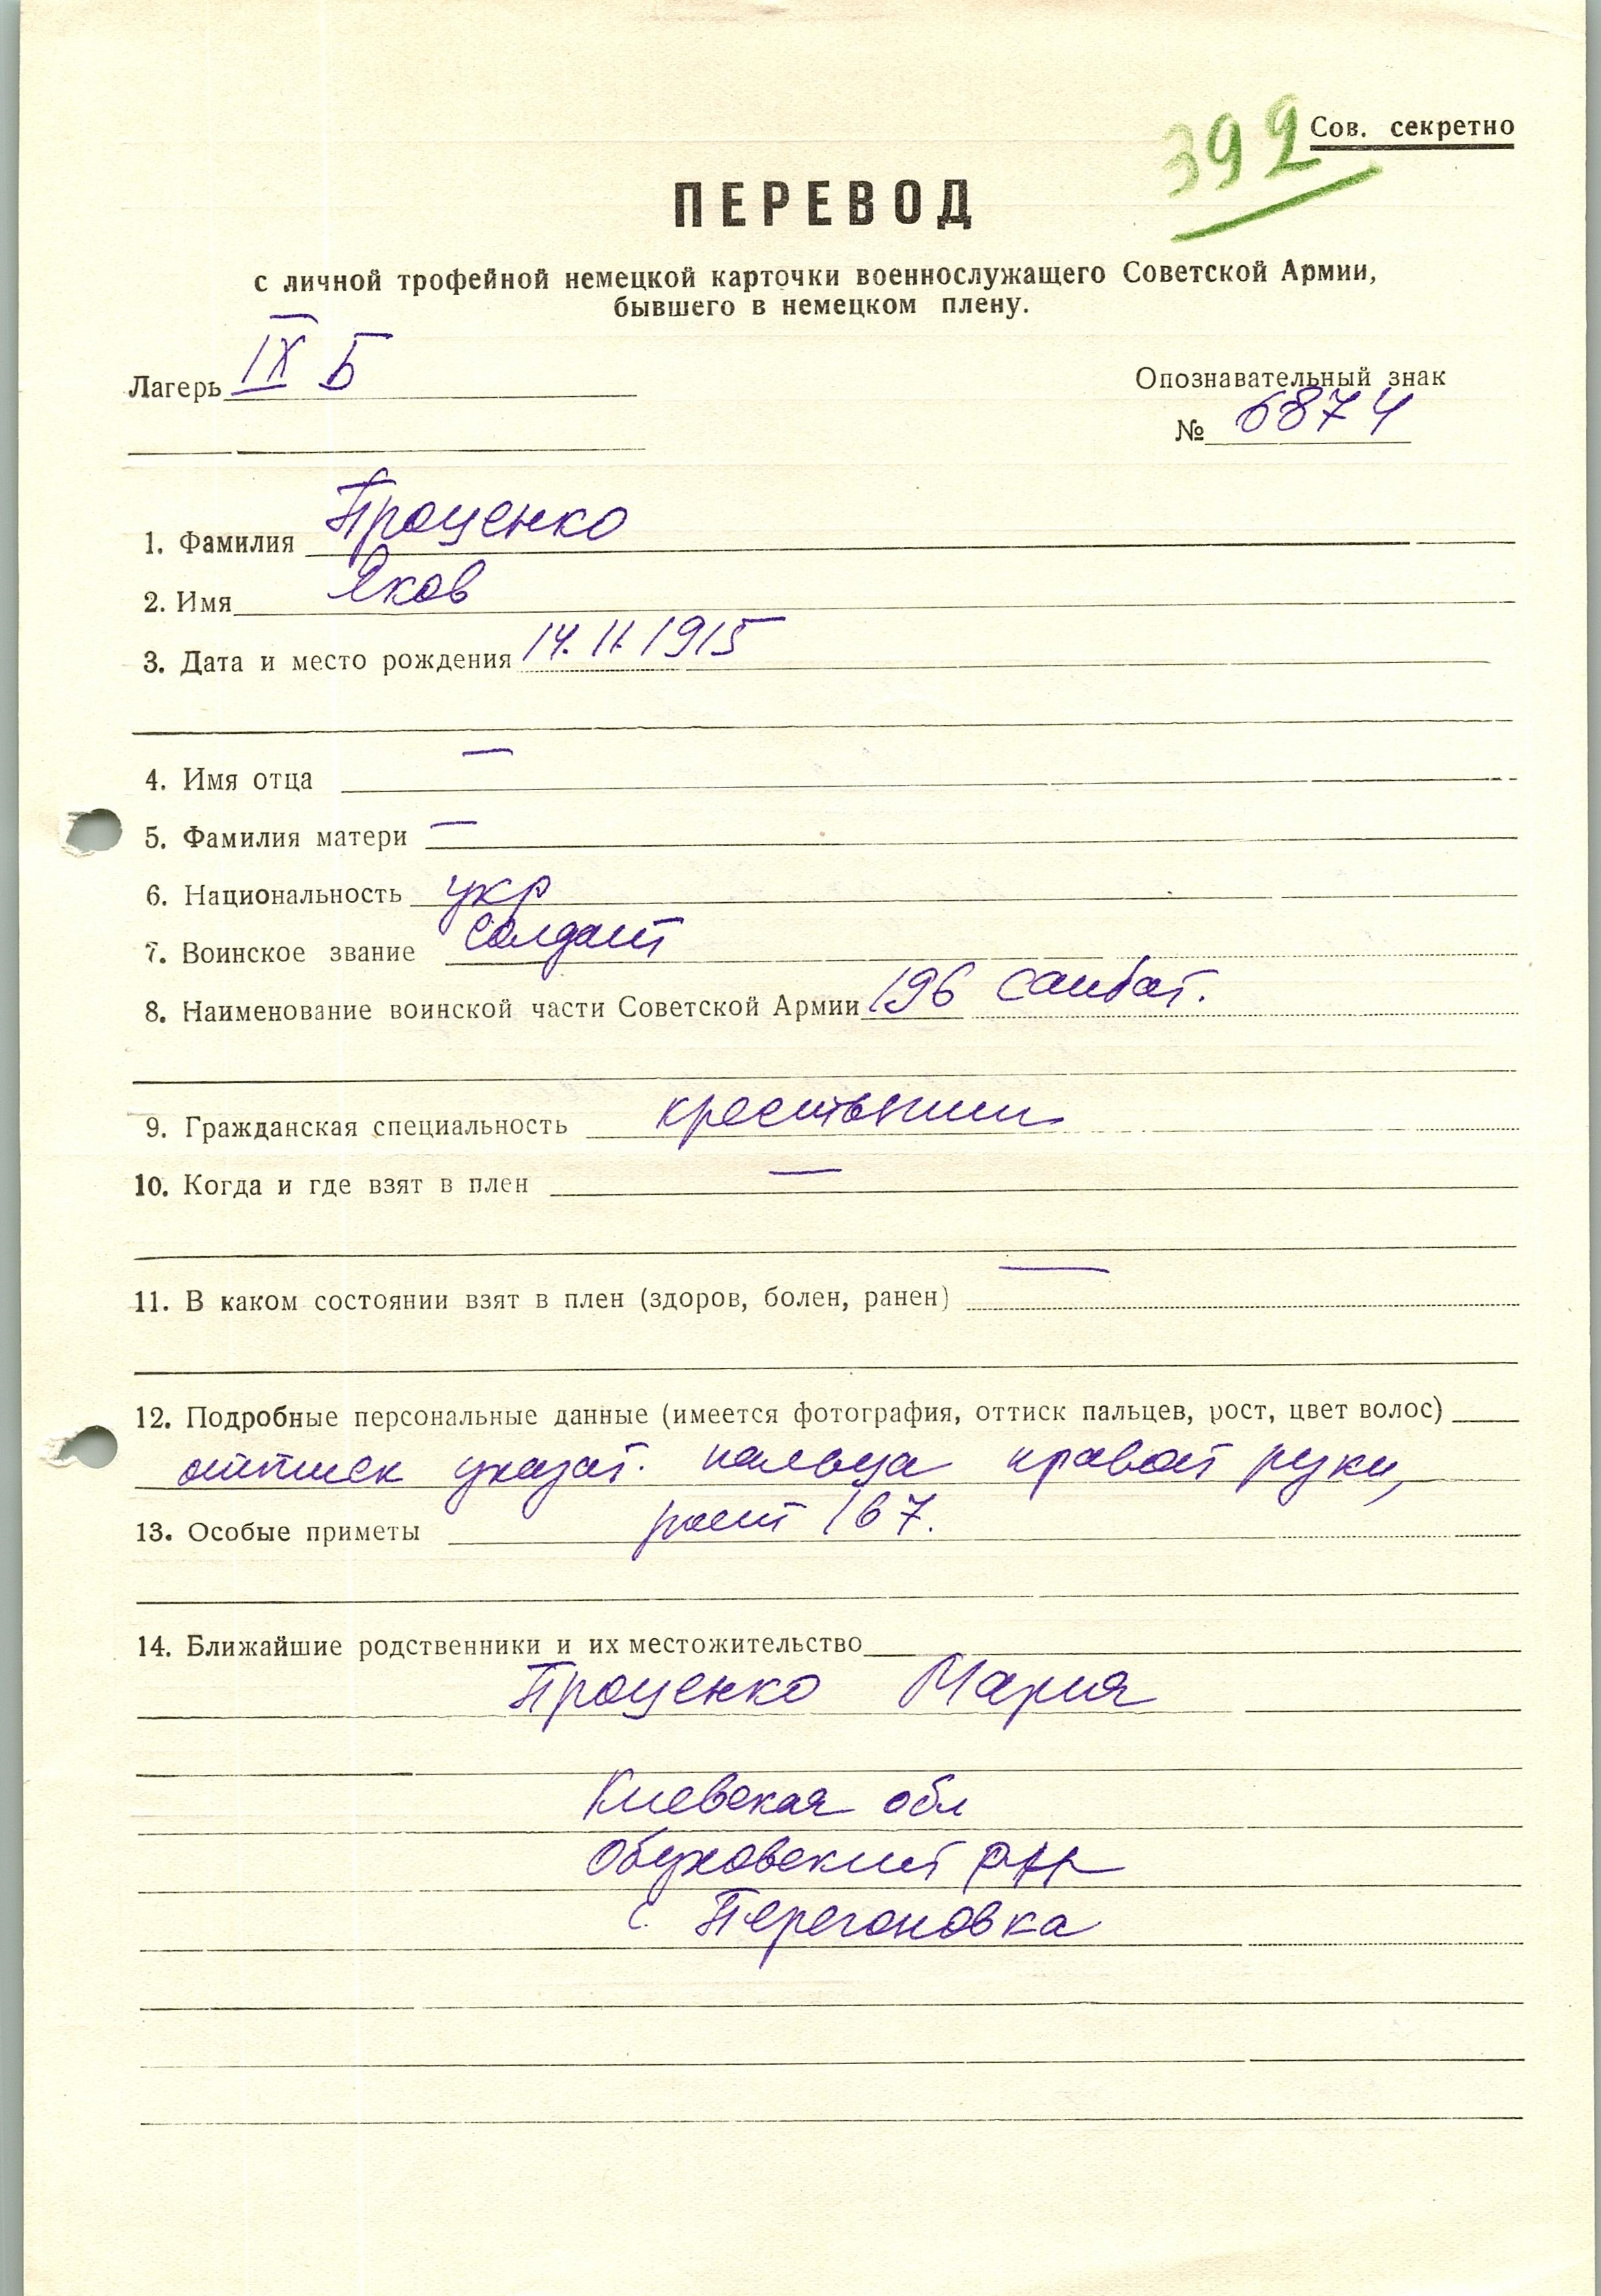 392 Сов. секретно
ПЕРЕВОД
с личной трофейной немецкой карточки военнослужащего Советской Армии,
бывшего в немецком плену.
Лагерь IX Б
Опознавательный знак
№ 6874
1. Фамилия Проценко
2. Имя Яков
3. Дата и место рождения 14.11.1915
4. Имя отца —
5. Фамилия матери —
6. Национальность укр
7. Воинское звание солдат
8. Наименование воинской части Советской Армии 196 санбат.
9. Гражданская специальность крестьянин
10. Когда и где взят в плен —
11. В каком состоянии взят в плен (здоров, болен, ранен) —
12. Подробные персональные данные (имеется фотография, оттиск пальцев, рост, цвет волос)
оттиск указат. пальца правой руки,
13. Особые приметы рост 167.
14. Ближайшие родственники и их местожительство
Проценко Мария
Киевская обл
Обуховский р-н
с. Перегоновка